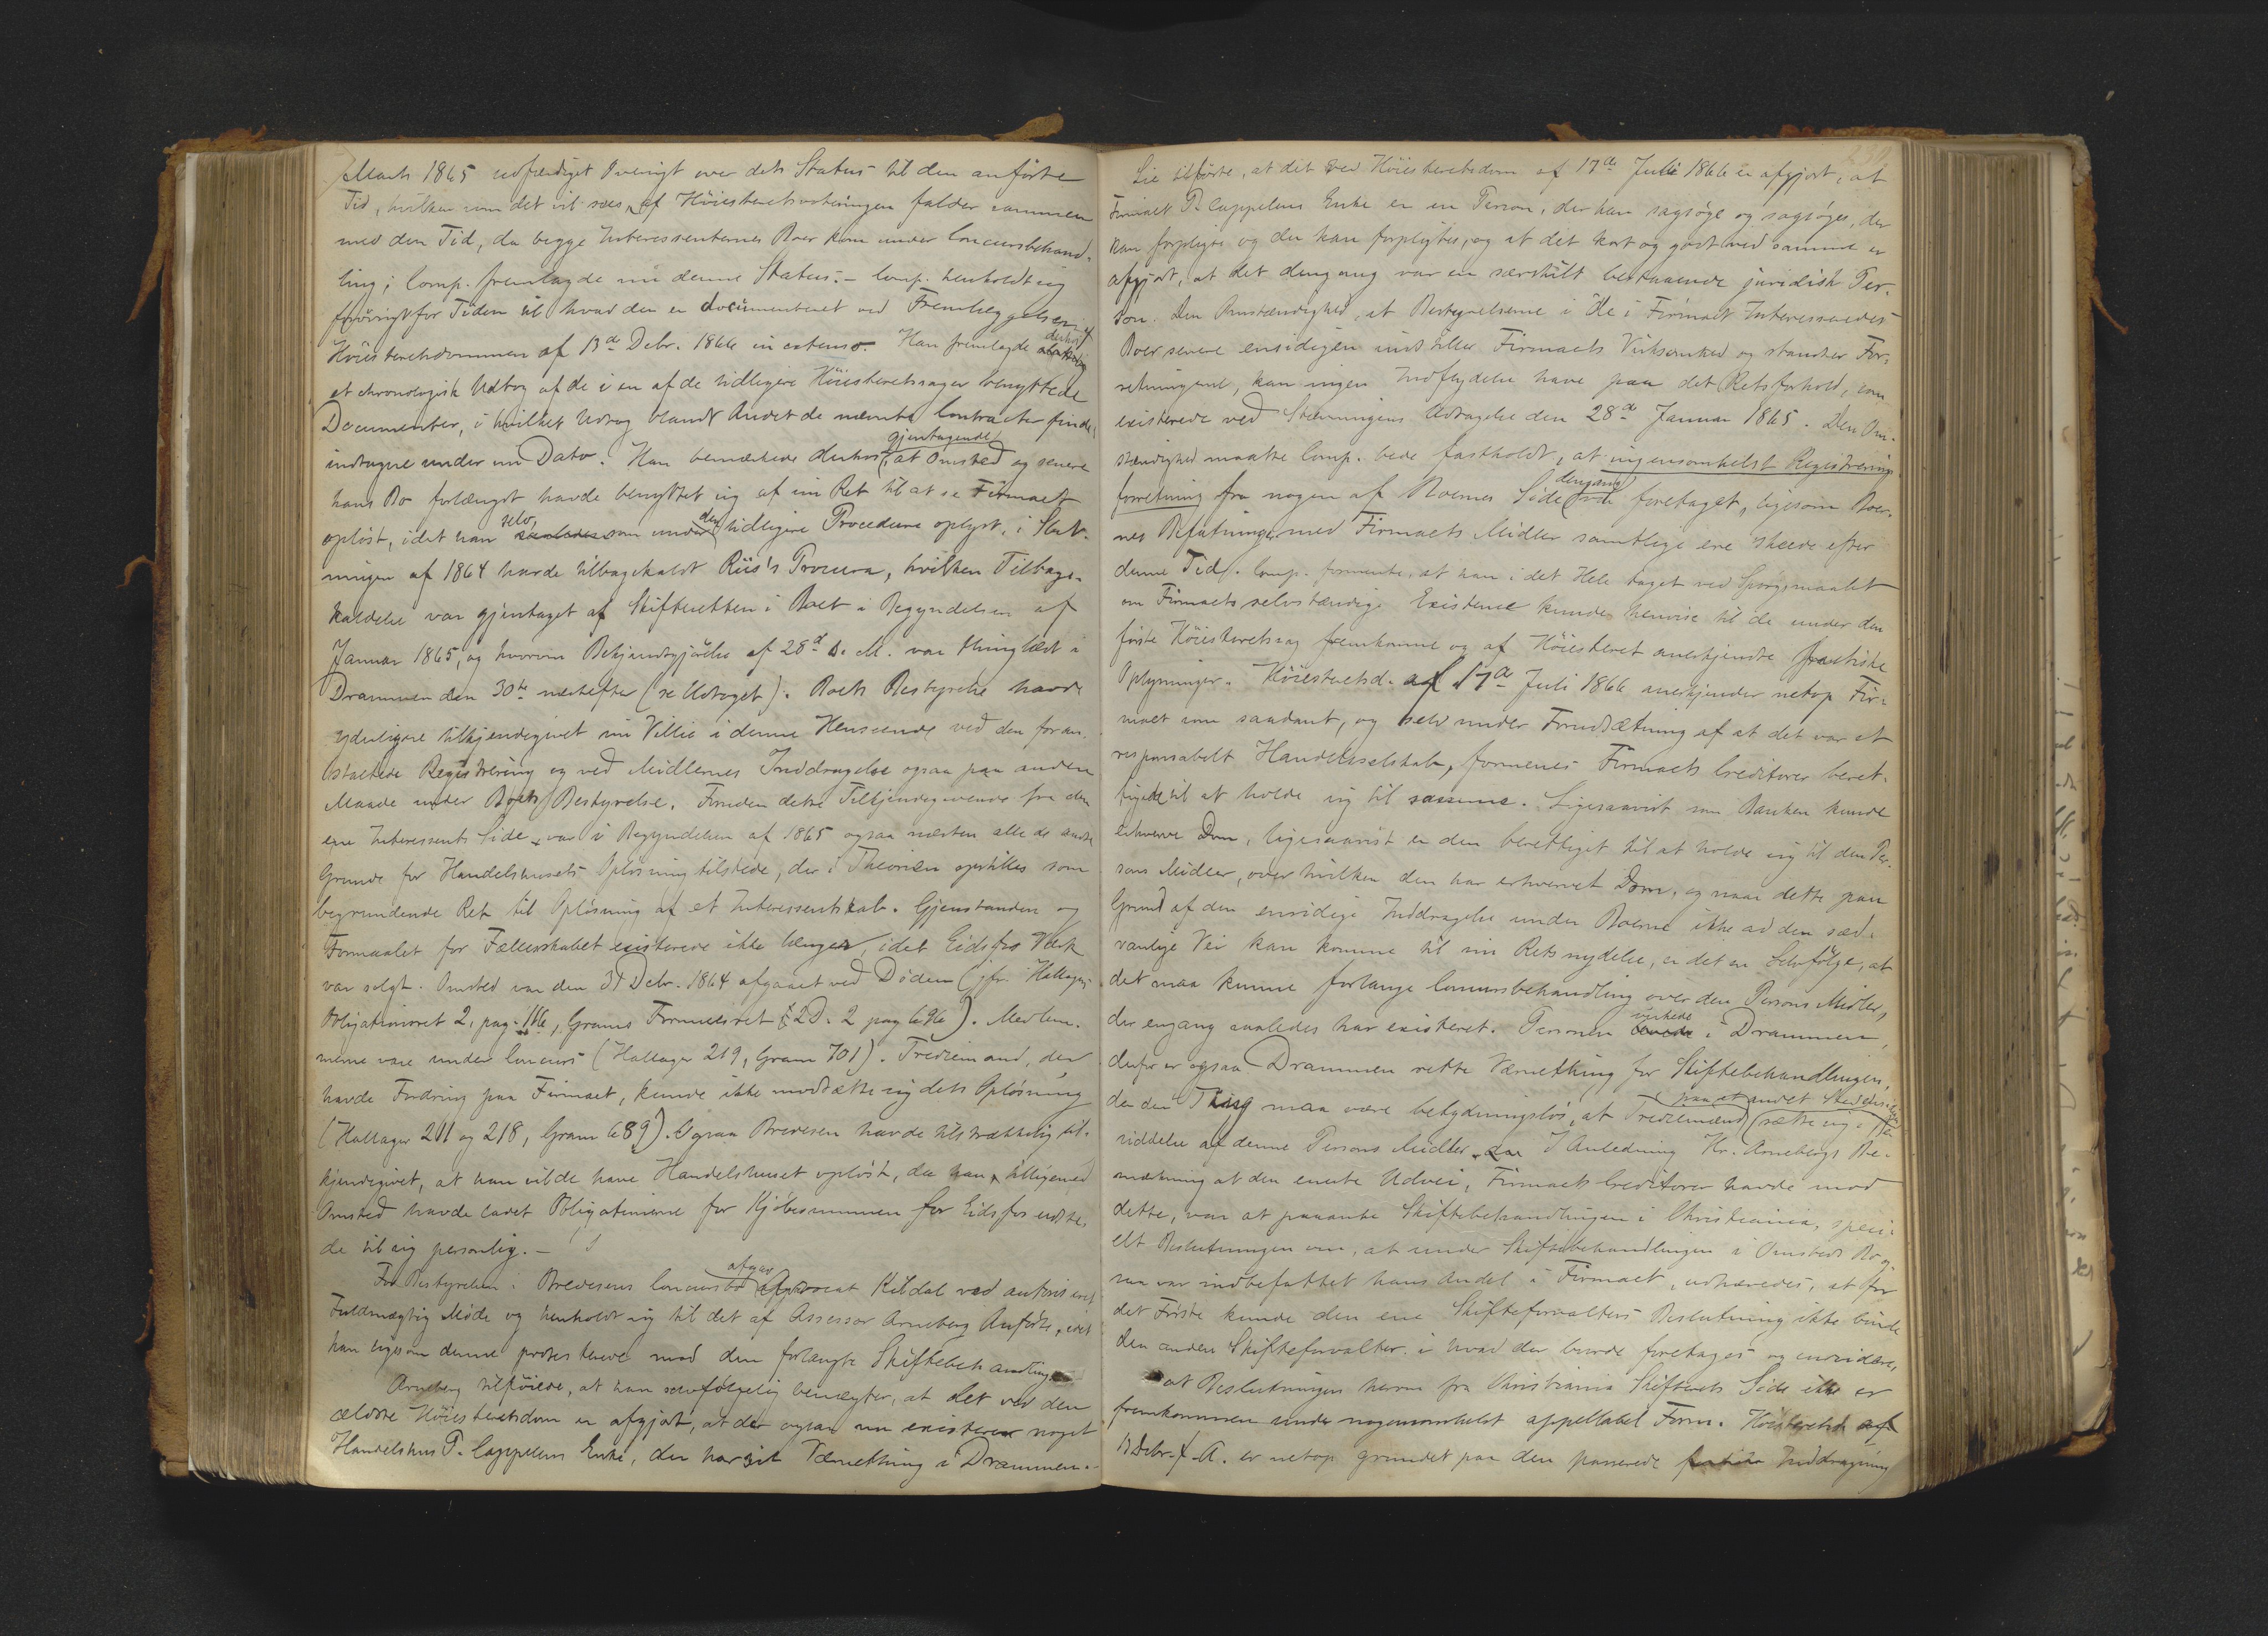 Marts 1865 udfærdiget Oversigt over dets Status til den anførte
Tid, hvilken som det vil sees af Høiesteretsvoteringen falder sammen
med den Tid, da begge Interessenternes Boer kom under Concursbehand-
ling; Comp. fremlagde nu denne Status. – Comp. henholdt sig
forøvrigt for Tiden til hvad der er documenteret ved Fremlæggelsen af
Høiesteretsdommen af 13de Debr. 1866 in extenso. Han fremlagde derhos
et chronologisk Udtog af de i en af de tidligere Høiesteretssager benyttede
Documenter, i hvilket Udtog blandt Andet de nævnte Contracter findes
indtagne under sin Dato. Han bemærkede derhos gjentagende, at Omsted og senere
hans Bo forlængst havde benyttet sig af sin Ret til at se Firmaet
opløst, idet han selv, som under den tidligere Procedure oplyst, i Slut-
ningen af 1864 havde tilbagekaldt Riis's Procura, hvilken Tilbage-
kaldelse var gjentaget af Skifteretten i Boet i Begyndelsen af
Januar 1865, og hvorom Bekjendtgjørelse af 28d s. M. var thinglæst i
Drammen den 30te næstefter (se Udtoget). Boets Bestyrelse havde
yderligere tilkjendegivet sin Villie i denne Henseende ved den foran-
staltede Registrering og ved Midlernes Inddragelse ogsaa paa anden
Maade under Boets Bestyrelse. Foruden dette Tilkjendegivende fra den
ene Interessents Side, var i Begyndelsen af 1865 ogsaa næsten alle de andre
Grunde for Handelshusets Opløsning tilstede, der i Theorien opstilles som
begrundende Ret til Opløsning af et Interessentskab. Gjenstanden og
Formaalet for Fællesskabet existerede ikke længer, idet Eidsfos Værk
var solgt. Omsted var den 31 Debr. 1864 afgaaet ved Døden (jfr. Hallagers
Obligationsret 2, pag. 116, Grams Formueret 2 D. 2 pag 696). Medlem-
merne vare under Concurs (Hallager 219, Gram 701). Trediemand, der
havde Fordring paa Firmaet, kunde ikke modsætte sig dets Opløsning
(Hallager 211 og 218, Gram 689). Ogsaa Bredesen havde tilstrækkelig til-
kjendegivet, at han vilde have Handelshuset opløst, da han, tilligemed
Omsted havde ladet Obligationerne for Kjøbesummen for Eidsfos udste-
de til sig personlig. –
For Bestyrelsen i Bredesens Concursbo afgav Advocat Kildal ved autoriseret
Fuldmægtig Møde og henholdt sig til det af Assessor Arneberg Anførte, idet
han ligesom denne protesterede mod den forlangte Skiftebehandling.
Arneberg tilføiede, at han selvfølgelig benægter, at det ved den
ældste Høiesteretsdom er afgjort, at der ogsaa nu existerer noget
Handelshus P. Cappelens Enke, der har sit Værnething i Drammen. –
Lie tilførte, at det ved Høiesteretsdom af 17de Juli 1866 er afgjort, at
Firmaet P. Cappelens Enke er en Person, der kan sagsøge og sagsøges, der
kan forpligte og der kan forpligtes, og at det kort og godt ved samme er
afgjort, at det dengang var en særskilt bestaaende juridisk Per-
son. Den Omstændighed, at Bestyrelserne i De i Firmaet Interesseredes
Boer senere ensidigen indstiller Firmaets Virksomhed og standser For-
retningerne, kan ingen Indflydelse have paa det Retsforhold, som
existerede ved Stævningens Udtagelse den 28de Januar 1865. Den Om-
stændighed maatte Comp. bede fastholdt, at ingensomhelst Registrerings
forretning fra nogen af Boernes Side dengang var foretaget, ligesom Boer-
nes Befatninger med Firmaets Midler samtlige ere skeede efter
denne Tid. Comp. formente, at han i det Hele taget ved Spørgsmaalet
om Firmaets selvstændige Existence kunde henvise til de under den
første Høiesteretssag fremkomne og af Høiesteret anerkjendte factiske
Oplysninger. Høiesteretsd. af 17de Juli 1866 anerkjender netop Fir-
maet som saadant, og selv under Forudsætning af at det var et
responsabelt Handelsselskab, formenes Firmaets Creditorer beret-
tigede til at holde sig til samme. Ligesaavist som Banken kunde
erhverve Dom, ligesaavist er den berettiget til at holde sig til den Per-
sons Midler, over hvilken den har erhvervet Dom, og naar dette paa
Grund af den ensidige Inddragelse under Boerne ikke ad den sæd-
vanlige Vei kan komme til sin Rets nydelse, er det en Selvfølge, at
det maa kunne forlange Concursbehandling over den Persons Midler,
der engang saaledes har existeret. Personen virkede i Drammen,
derfor er ogsaa Drammen rette Værnething for Skiftebehandlingen,
da den Ting maa være betydningsløs, at Trediemænd paa et andet Sted sætte sig i Be-
siddelse af denne Persons Midler. I Anledning Hr. Arnebergs Be-
mærkning at den eneste Udvei, Firmaets Creditorer havde mod
dette, var at paaanke Skiftebehandlingen i Christiania, speci-
elt Beslutningen om, at under Skiftebehandlingen i Omsteds Bo og-
saa var indbefattet hans Andel i Firmaet, udhævedes, at for
det Første kunde den ene Skifteforvalters Beslutning ikke binde
den anden Skifteforvalter i hvad der burde foretages og endvidere,
at Beslutningen herom fra Christiania Skifterets Side ikke er
fremkommen under nogensomhelst appellabel Form. Høiesteretsd. af
13 Debr. f. A. er netop grundet paa den passerede factiske Inddragning